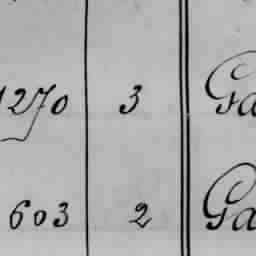 1270 3 Ga
603 2 Ga